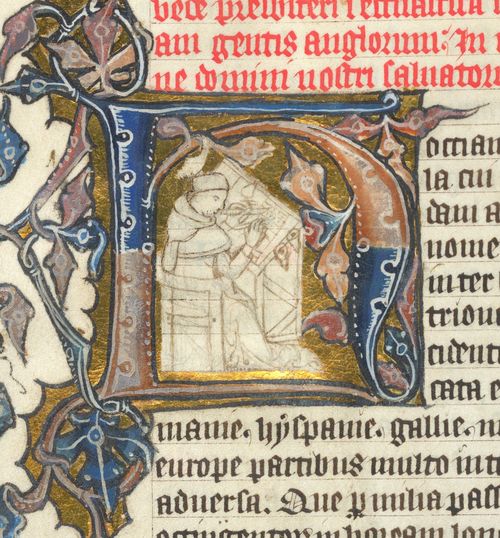 vede presbiteri i ecclastica
am gentis anglorum. In
ne domini nostri saluator
H
occian
la cui
dam a
nome
inter
triou
cident
cata e
manie. hyspanie. gallie.
europe partibus multo int
aduersa. Que p milia pass